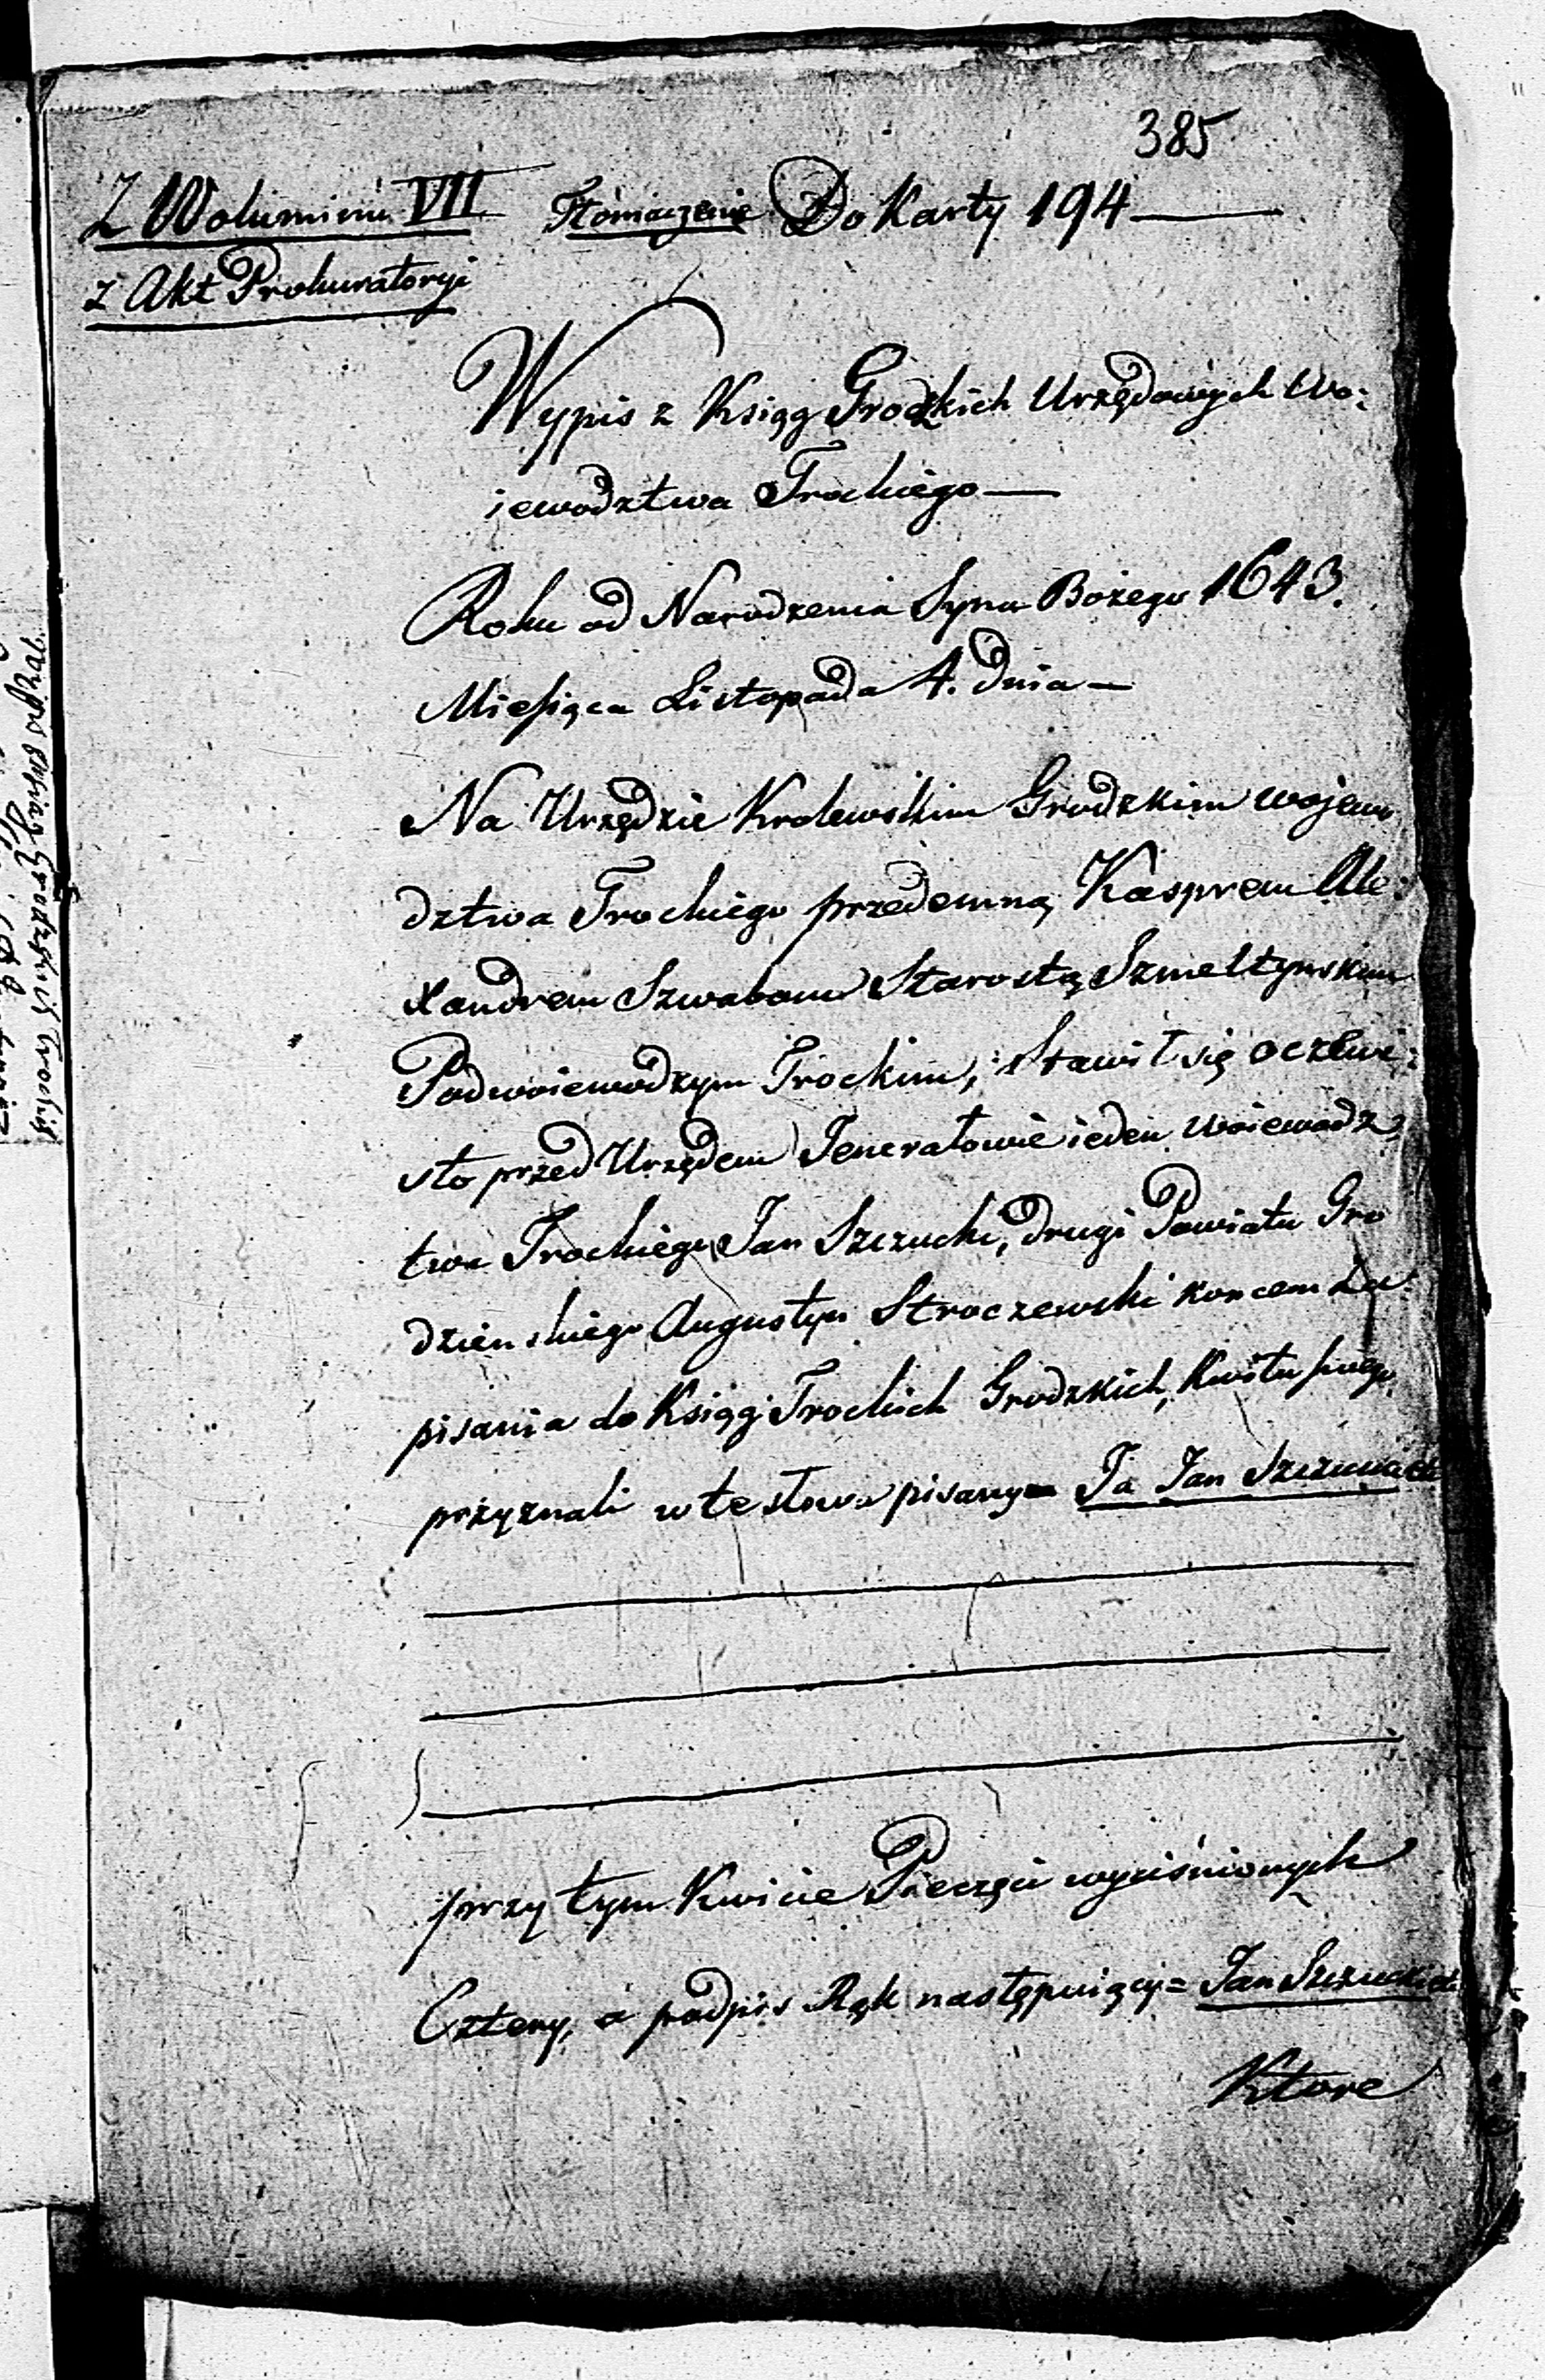 385
Z Woluminu VII Tłómaczenie Do Karty 194
z Akt Prokuratoryi
Wypis z Ksiąg Grodzkich Urzędowych Wo:
iewodztwa Trockiego
Roku od Narodzenia Syna Bożego 1643.
Miesiąca Listopada 4. dnia
Na Urzędzie Krolewskim Grodzkim wojewo
dztwa Trockiego przedemną Kasprem Ale:
xandrem Szwabem Starostą Szmeltynskim
Podwoiewodzym Trockim, Stawił się oczewi:
sto przed Urzędem Jenerałowie ieden woiewodz
twa Trockiego Jan Szczucki, drugi Powiatu Gro
dzienskiego Augustyn Stroczewski koncem za
pisania do Ksiąg Trockich Grodzkich, Kwitu swego
przyznali w te słowa pisany = Ja Jan Szczucki
przy tym Kwicie Pieczęci wyciśnionych
Cztery, a podpis Rąk następuiący = Jan Szczucki
Ktore